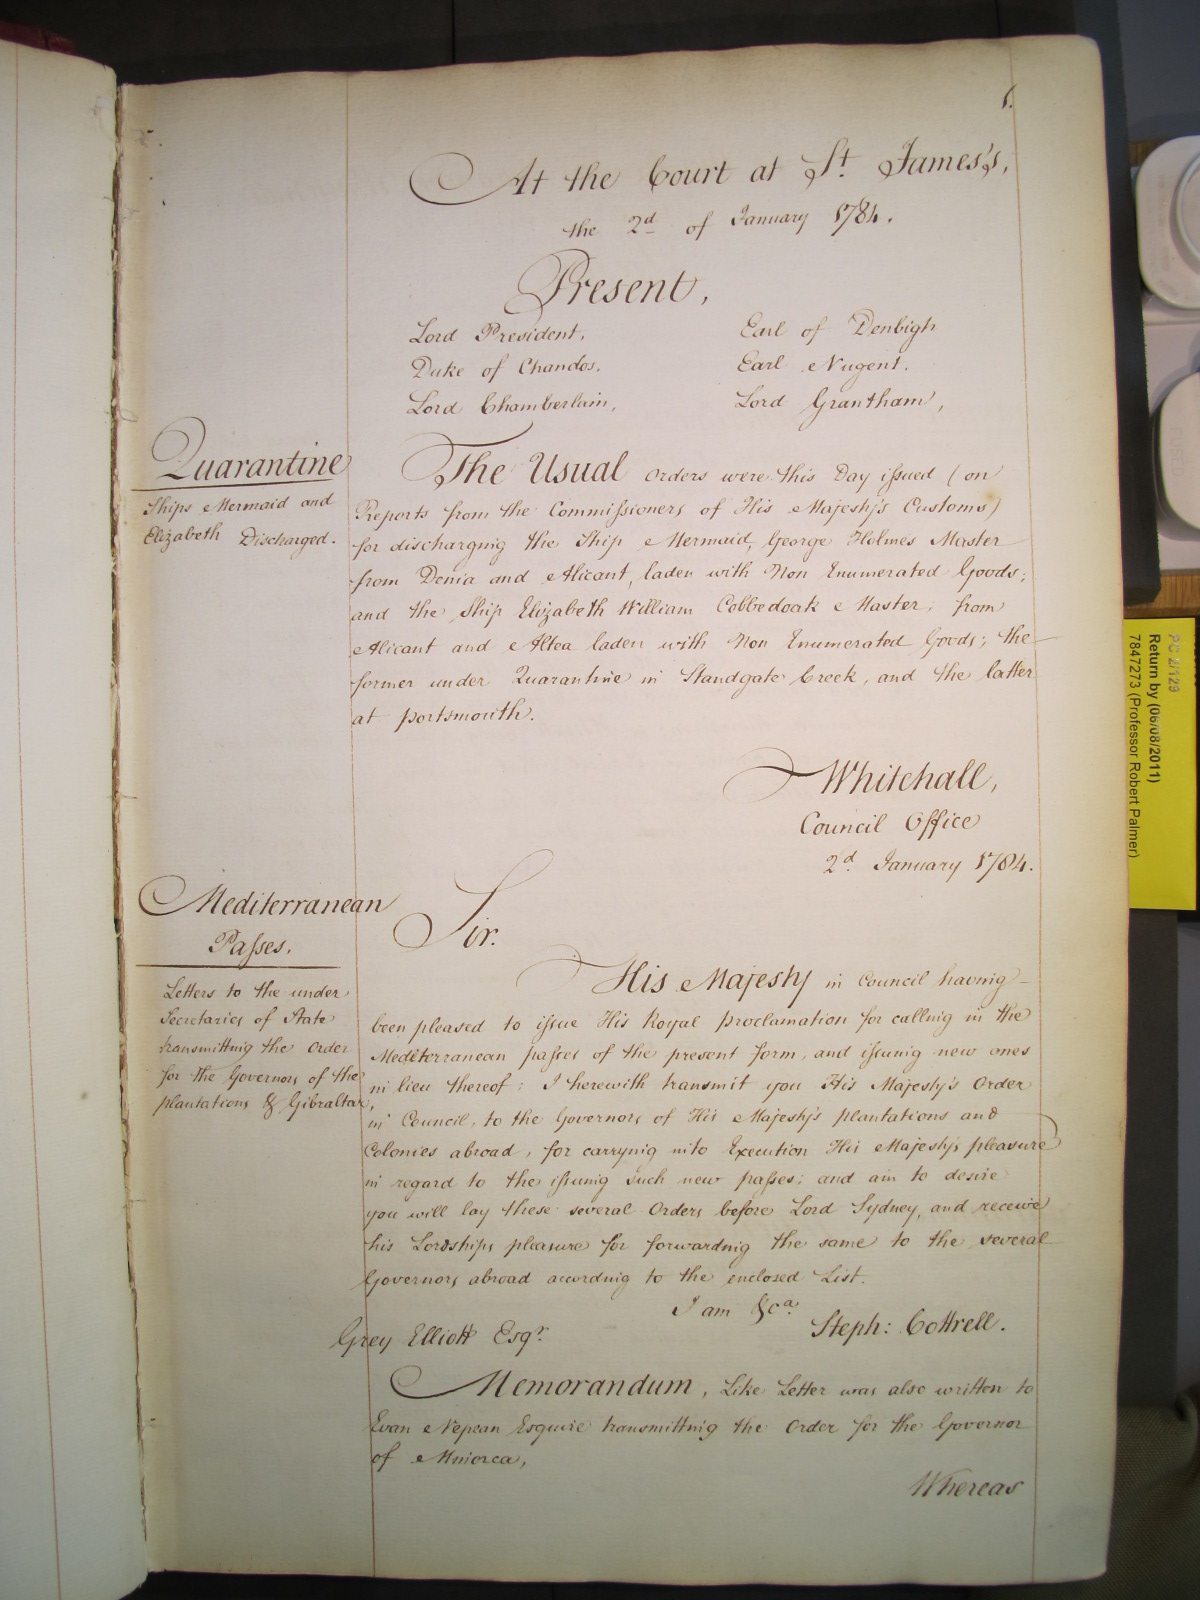 1.
At the Court at St. James's,
the 2d of January 1784.
Present,
Lord President, Earl of Denbigh
Duke of Chandos. Earl Nugent.
Lord Chamberlain, Lord Grantham,
Quarantine
Ships Mermaid and
Elizabeth Discharged.
The Usual orders were this Day issued (on
Reports from the Commissioners of His Majesty's Customs)
for discharging the Ship Mermaid, George Holmes Master
from Denia and Alicant, laden with Non Enumerated Goods;
and the Ship Elizabeth William Cobbedoak Master, from
Alicant and Altea laden with Non Enumerated Goods; the
former under Quarantine in Standgate Creek, and the latter
at portsmouth.
Whitehall,
Council Office
2d. January 1784.
Mediterranean
Passes.
Letters to the under
Secretaries of State
transmitting the Order
for the Governors of the
plantations & Gibraltar,
Sir.
His Majesty in Council having
been pleased to issue His Royal proclamation for calling in the
Mediterranean passes of the present form, and issuing new ones
in lieu thereof: I herewith transmit you His Majesty's Order
in Council, to the Governors of His Majesty's plantations and
Colonies abroad, for carrying into Execution His Majesty's pleasure
in regard to the issuing such new passes; and am to desire
you will lay these several Orders before Lord Sydney, and receive
his Lordships pleasure for forwarding the same to the several
Governors abroad according to the enclosed List.
I am &ca.
Steph: Cottrell.
Grey Elliott Esqr.
Memorandum, Like Letter was also written to
Evan Nepean Esquire transmitting the Order for the Governor
of Minorca,
Whereas
PC 2/129
Return by (06/08/2011)
7847273 (Professor Robert Palmer)